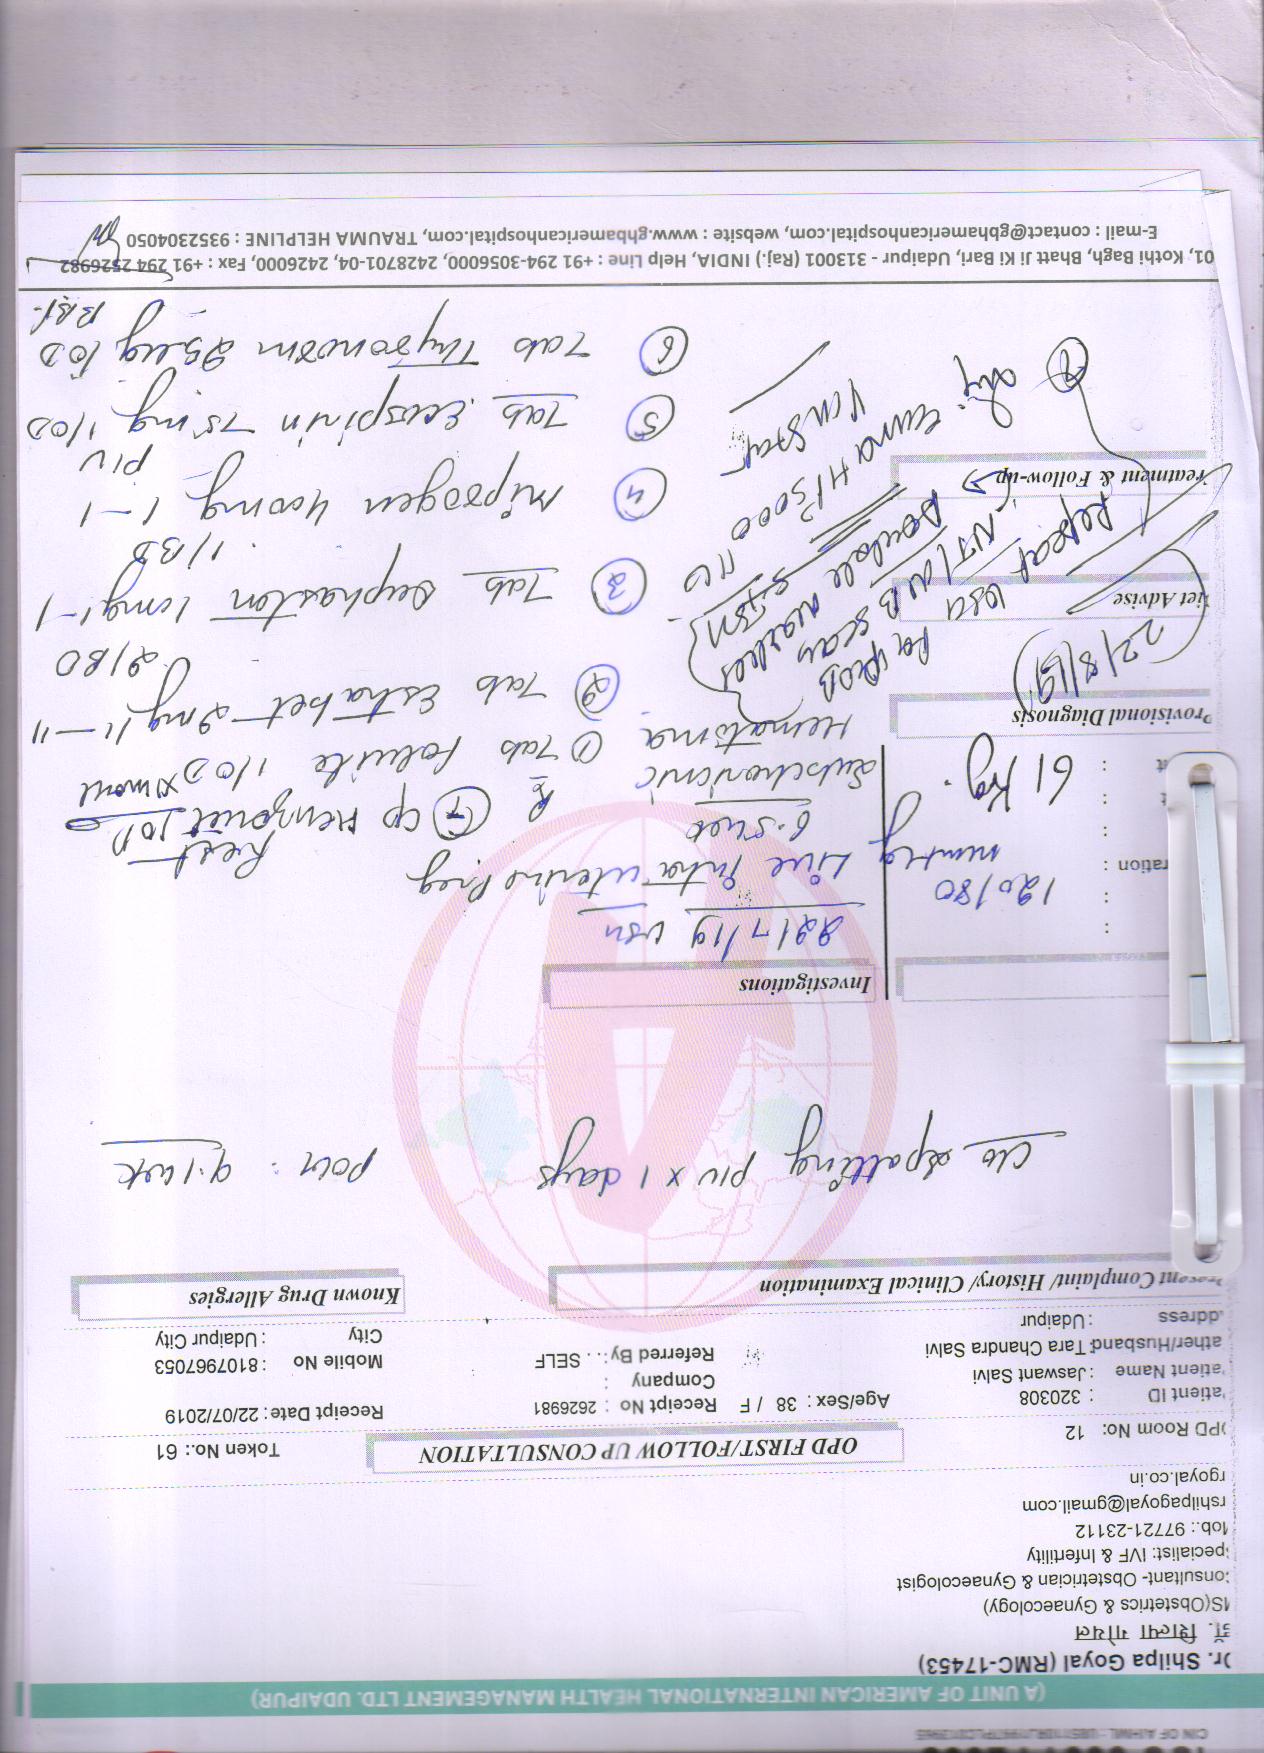 CIN OF AIHML : U85110RJ1997PLC013965
(A UNIT OF AMERICAN INTERNATIONAL HEALTH MANAGEMENT LTD. UDAIPUR)
Dr. Shilpa Goyal (RMC-17453)
डॉ. शिल्पा गोयल
MS(Obstetrics & Gynaecology)
Consultant- Obstetrician & Gynaecologist
Specialist: IVF & Infertility
Mob.: 97721-23112
rshilpagoyal@gmail.com
rgoyal.co.in
OPD Room No: 12
OPD FIRST/FOLLOW UP CONSULTATION
Token No.: 61
atient ID : 320308
Age/Sex : 38 / F
Receipt No : 2626981
Receipt Date: 22/07/2019
atient Name : Jaswant Salvi
Company :
ather/Husband: Tara Chandra Salvi
Referred By: . . SELF
Mobile No : 8107967053
ddress : Udaipur
City : Udaipur City
Present Complaint/ History/ Clinical Examination
Known Drug Allergies
C/o spotting P/V x 1 days
POG : 9.1 wk
Investigations
22/7/19 USG
120/80
mmHg
ration :
Live intrauterine Preg
6.5 wk
Subchorionic
Hematoma
61 kg.
Rest
Rx
⑦ Cp 1 OD
① Tab Folvite 1/OD x 1 mont
② Tab Estrabet 2mg 11-11
2/BD
③ Tab Duphaston 10mg 1-1
1/BD
④ Miprogen 400mg 1-1
P/V
⑤ Tab Ecosprin 75mg 1/OD
⑥ Tab Thyronorm 25ug 1 OD
BBF
Provisional Diagnosis
22/8/19
Diet Advise
Repeat USG
NT/NB scan
Double marker
Treatment & Follow-up
Inj. HP 5000 IU
I/M stat
01, Kothi Bagh, Bhatt Ji Ki Bari, Udaipur - 313001 (Raj.) INDIA, Help Line : +91 294-3056000, 2428701-04, 2426000, Fax : +91 294 2526982
E-mail : contact@gbhamericanhospital.com, website : www.gbhamericanhospital.com, TRAUMA HELPLINE : 9352304050